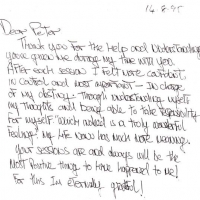 14.8.95
Dear Peter
Thank you for the help and understanding
you've given me during my time with you.
After each session I felt more confident,
in control and most importantly - in charge
of my destiny. Through understanding myself,
my thoughts and being able to take responsibility
for myself, which indeed is a truly wonderful
feeling, my life now has much more meaning.
Your sessions are and always will be the
Most Positive thing to have happened to me!
For this I'm eternally grateful!